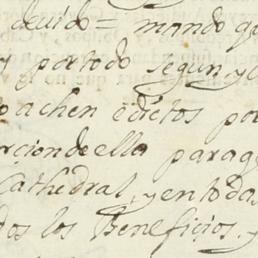 deuido = mando q
portodo segun, y
achen edictos po
rciondeella paraq
Cathedral, yentodas
dos los Beneficios. y